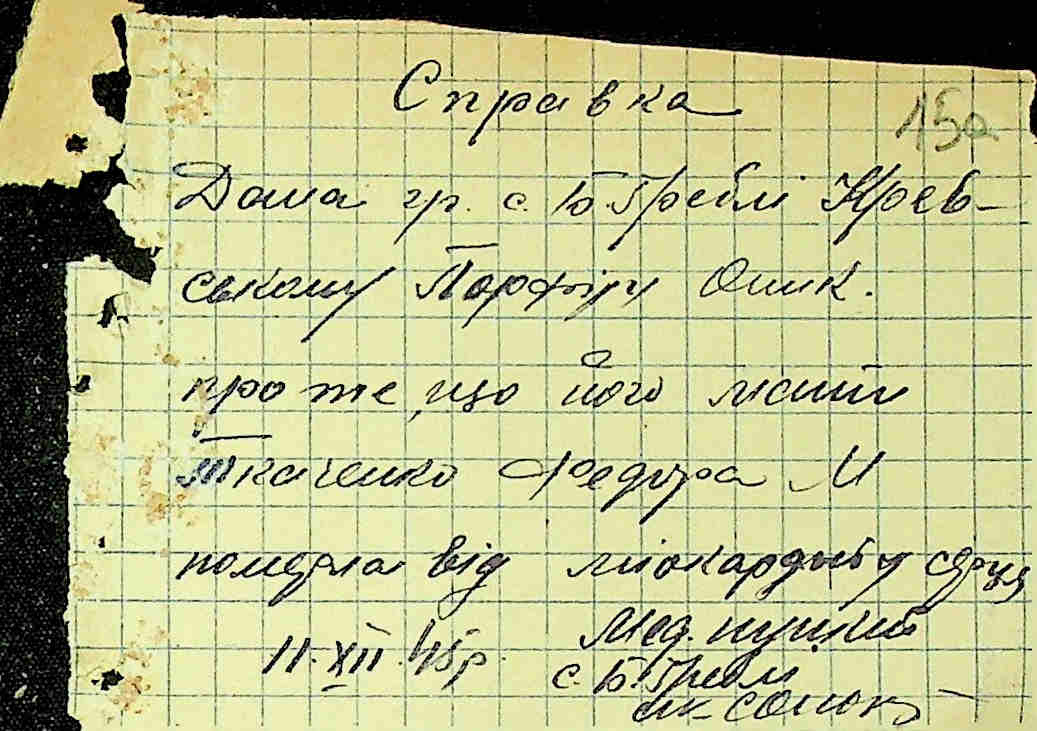 Справка
15а
Дана гр. с. Б. Греблі Крев-
ському Порфіру Оник.
про те, що його мати
Ткаченко Федора М
померла від міокардиту серця
11.XII.45р. Мед. пункт
с. Б. Греблі